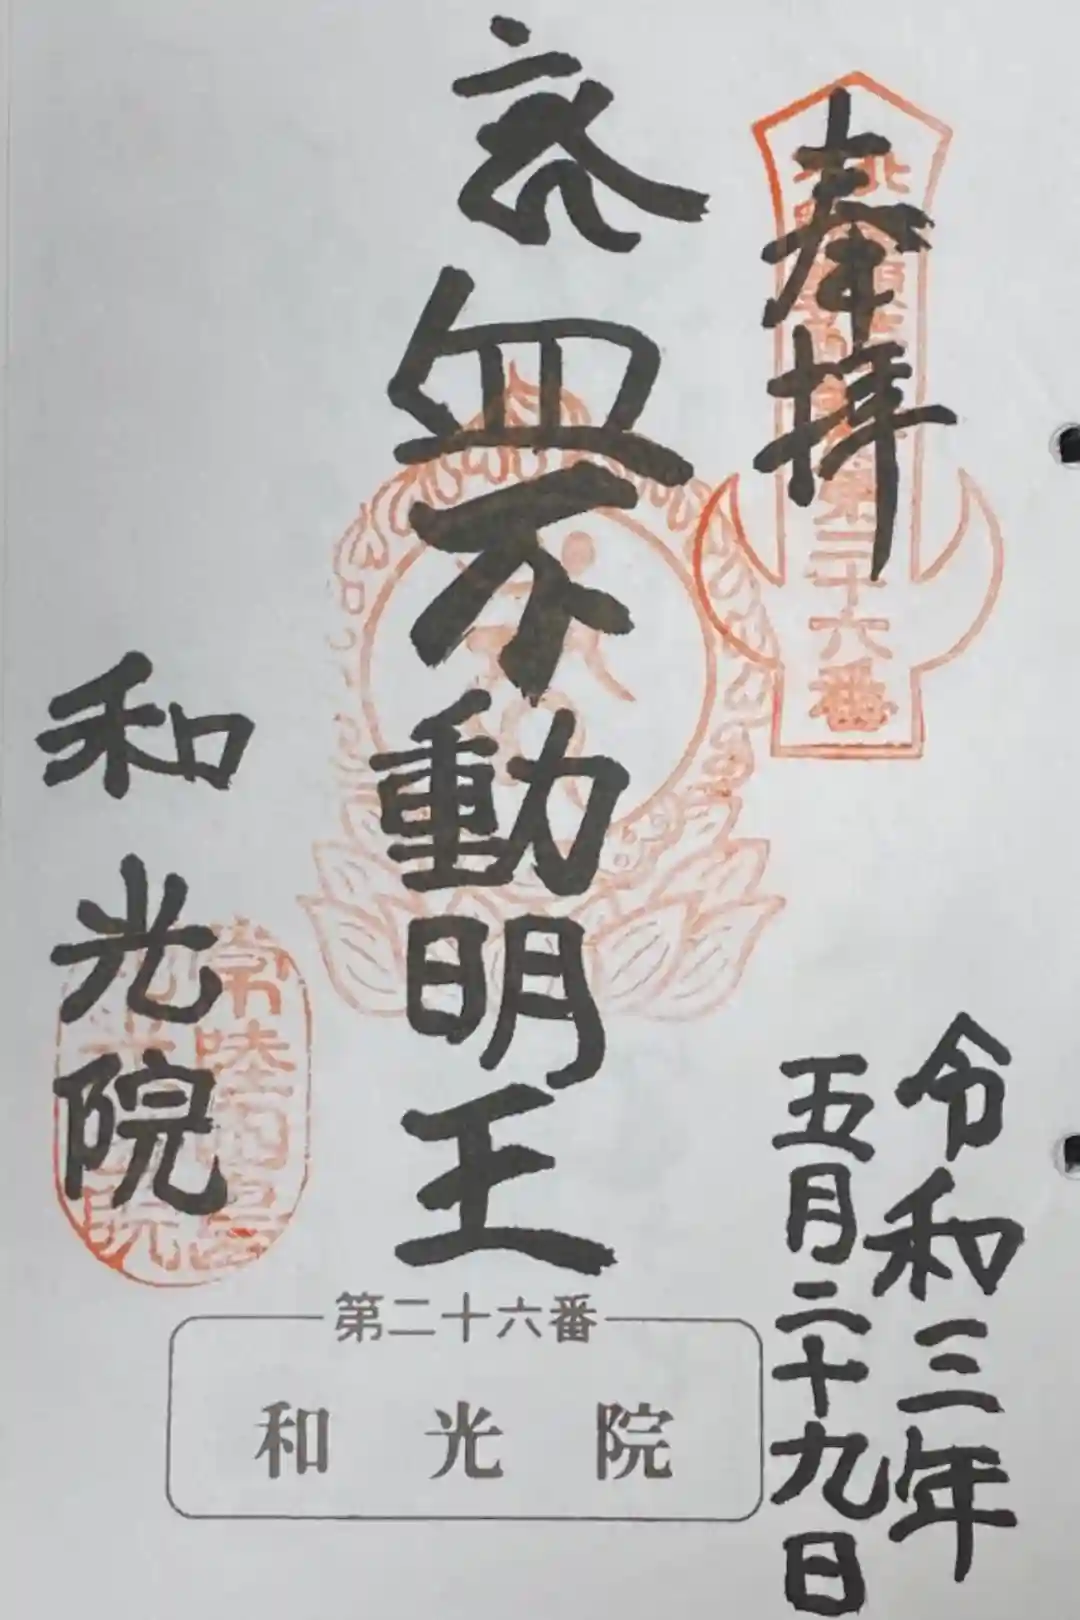 奉拝
第二十六番
令和三年
五月二十九日
不動明王
和光院
常陸
第二十六番
和光院